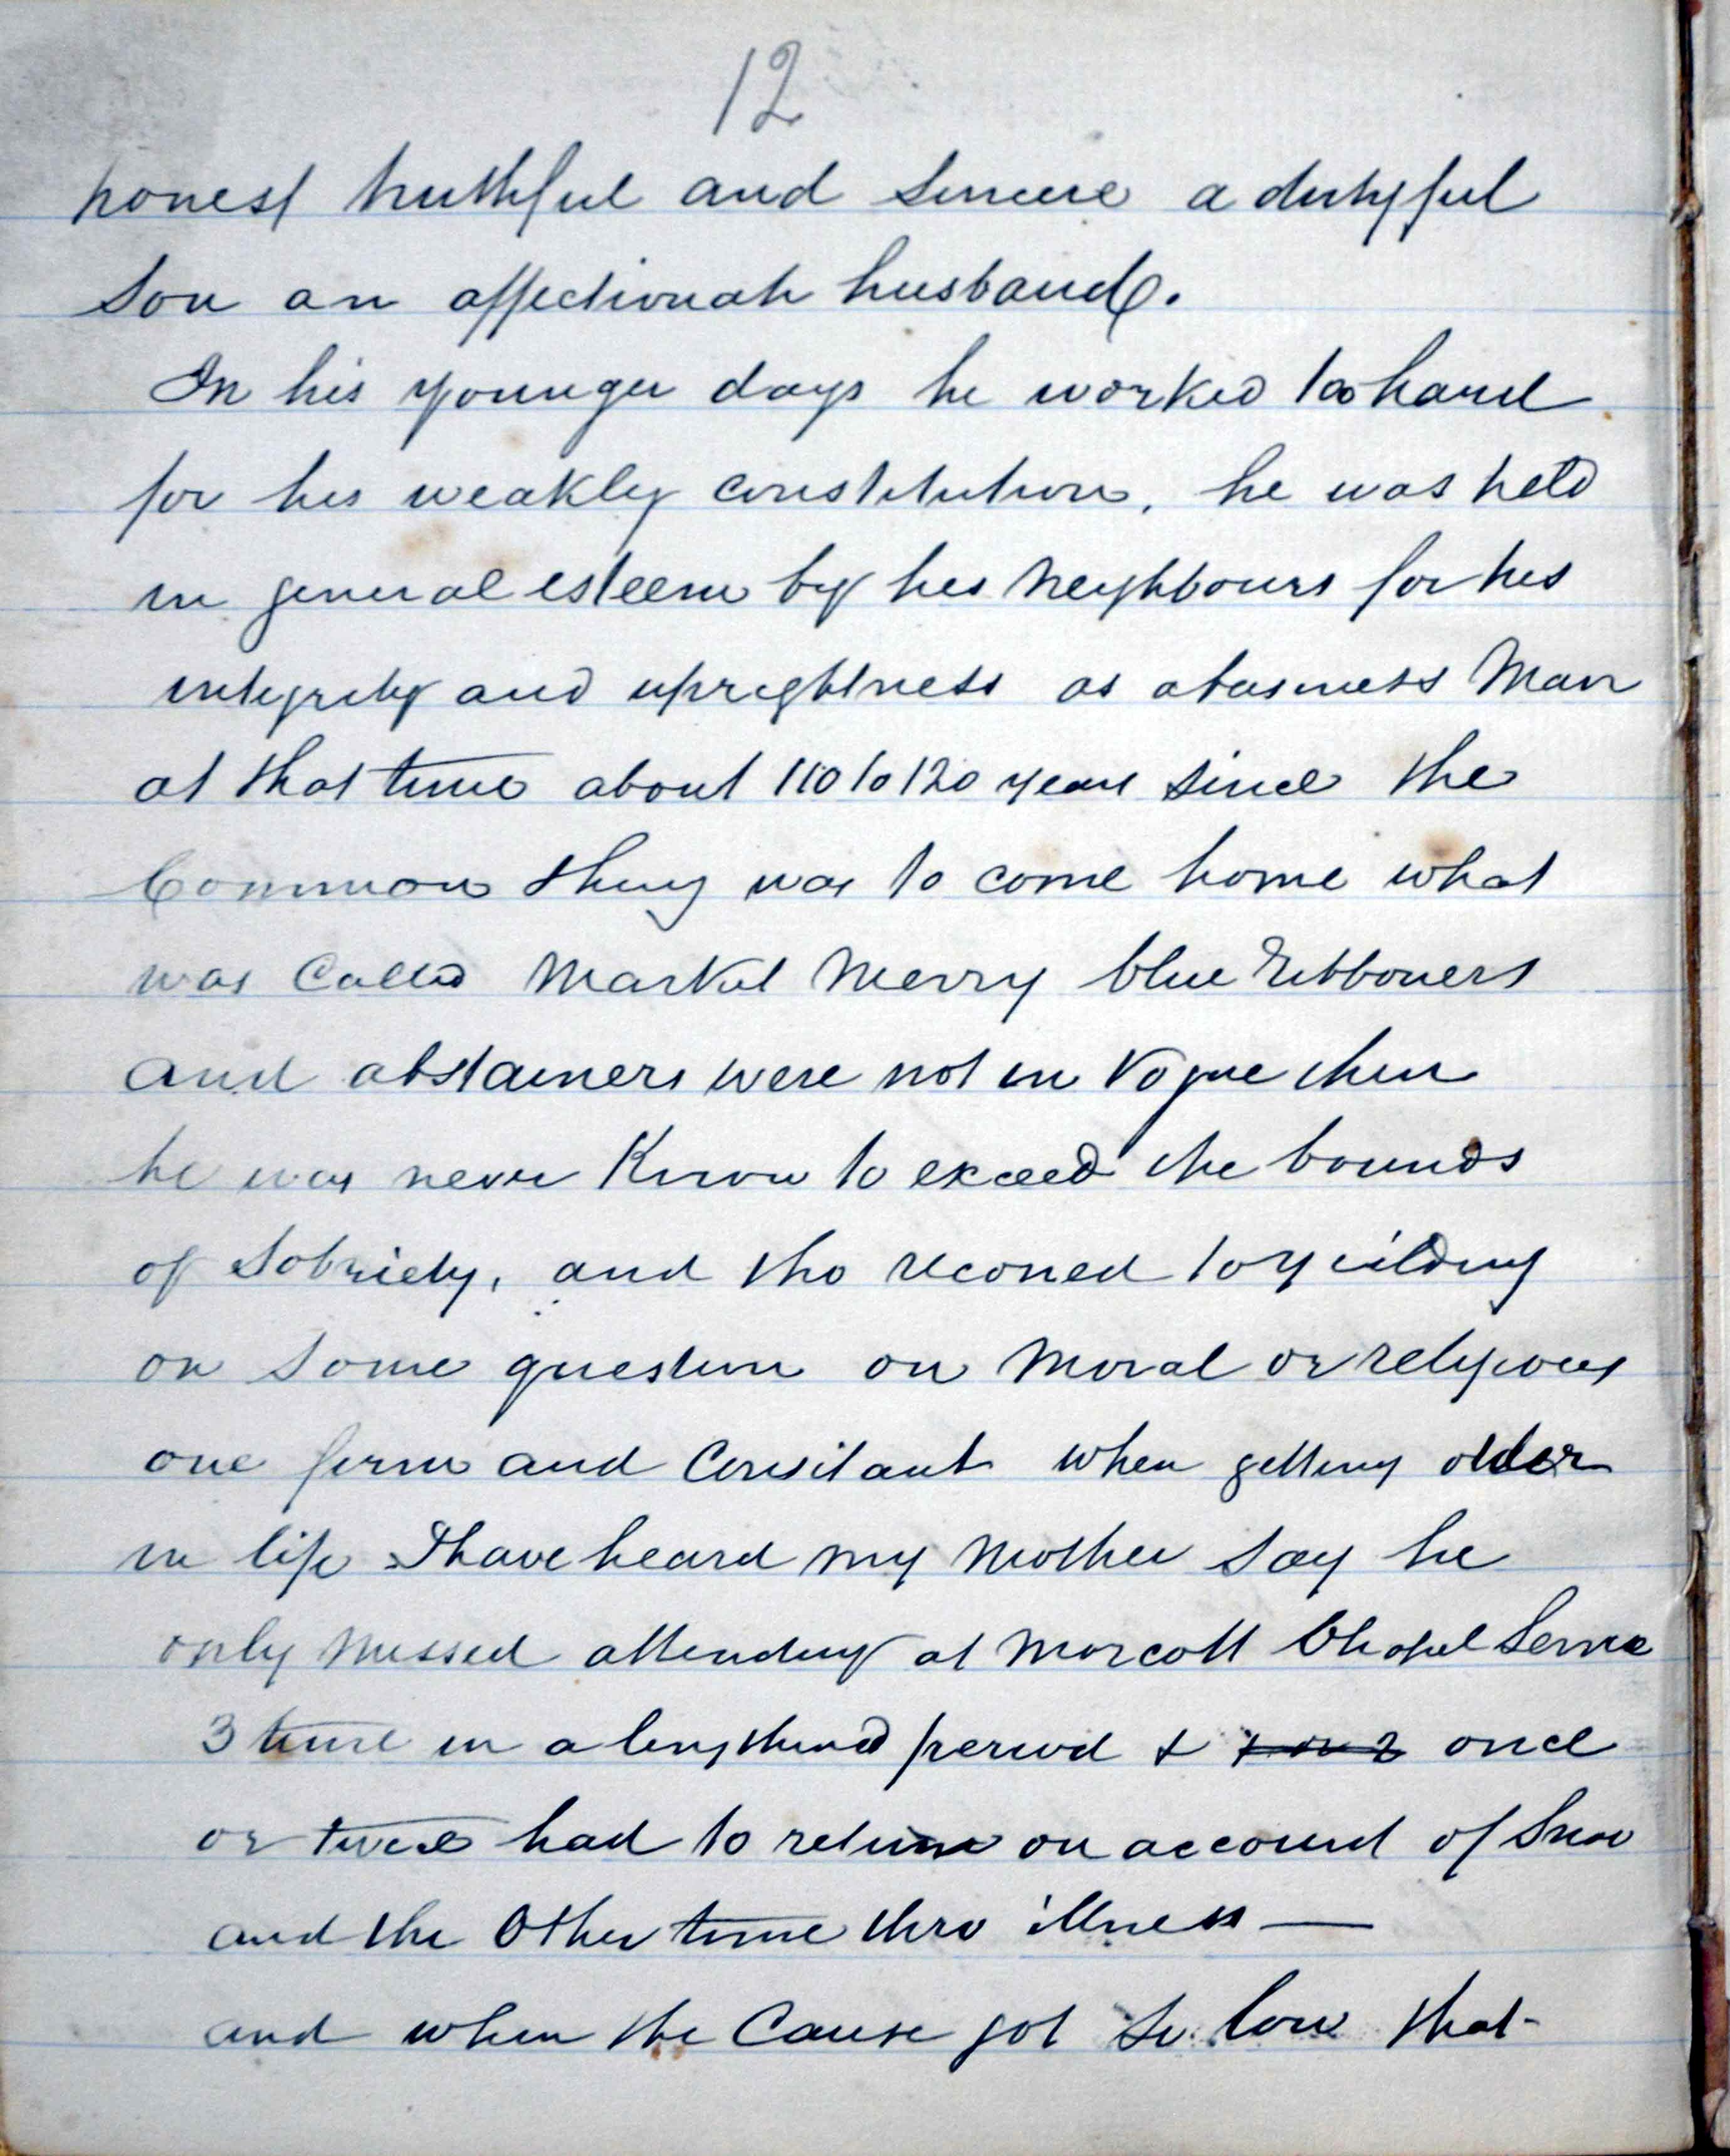 12
honest truthful and sincere a dutyful
son an affectionate husband.
In his younger days he worked too hard
for his weakly constitution, he was held
in general esteem by his neighbours for his
integrity and uprightness as a business man
at that time about 110 to 120 years since the
Common thing was to come home what
was Called Market Merry blue ribboners
and abstainers were not in Vogue then
he was never Known to exceed the bounds
of sobriety, and tho reconed to yeilding
on some question on Moral or religious
one firm and Consitant when getting older
in life I have heard my Mother say he
only missed attending at Morcott Chapel Service
3 time in a lengthened period & once
or twice had to return on account of Snow
and the Other time thro illness —
and when the Cause got so low that